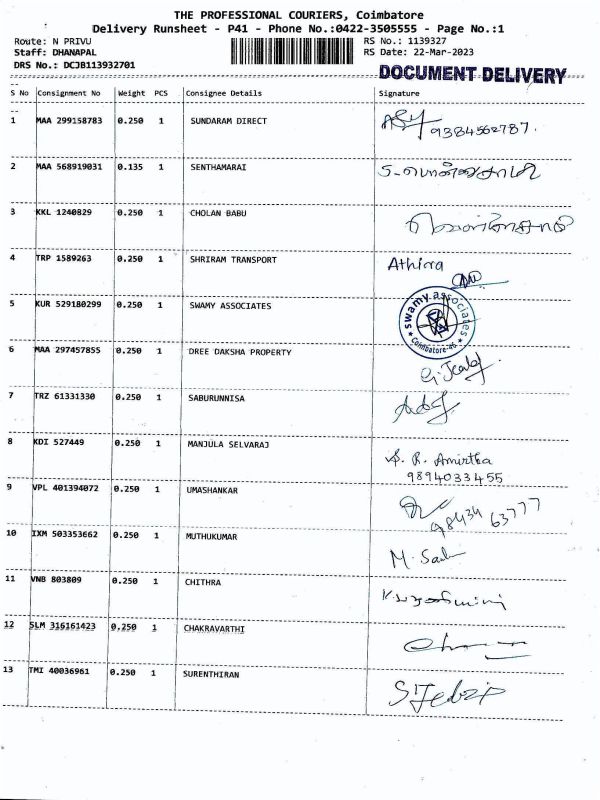 THE PROFESSIONAL COURIERS, Coimbatore
Delivery Runsheet - P41 - Phone No.:0422-3505555 - Page No.:1
Route: N PRIVU RS No.: 1139327
Staff: DHANAPAL RS Date: 22-Mar-2023
DRS No.: DCJB113932701
DOCUMENT DELIVERY
S No Consignment No Weight PCS Consignee Details Signature
1 MAA 299158783 0.250 1 SUNDARAM DIRECT 9384562787.
2 MAA 568919031 0.135 1 SENTHAMARAI
3 KKL 1240829 0.250 1 CHOLAN BABU
4 TRP 1589263 0.250 1 SHRIRAM TRANSPORT Athira
5 KUR 529180299 0.250 1 SWAMY ASSOCIATES swamy associates Coimbatore-46
6 MAA 297457855 0.250 1 DREE DAKSHA PROPERTY
7 TRZ 61331330 0.250 1 SABURUNNISA
8 KDI 527449 0.250 1 MANJULA SELVARAJ S. R. Amirtha
9894033455
9 VPL 401394072 0.250 1 UMASHANKAR 98434 63777
10 IXM 503353662 0.250 1 MUTHUKUMAR
11 VNB 803809 0.250 1 CHITHRA
12 SLM 316161423 0.250 1 CHAKRAVARTHI
13 TMI 40036961 0.250 1 SURENTHIRAN